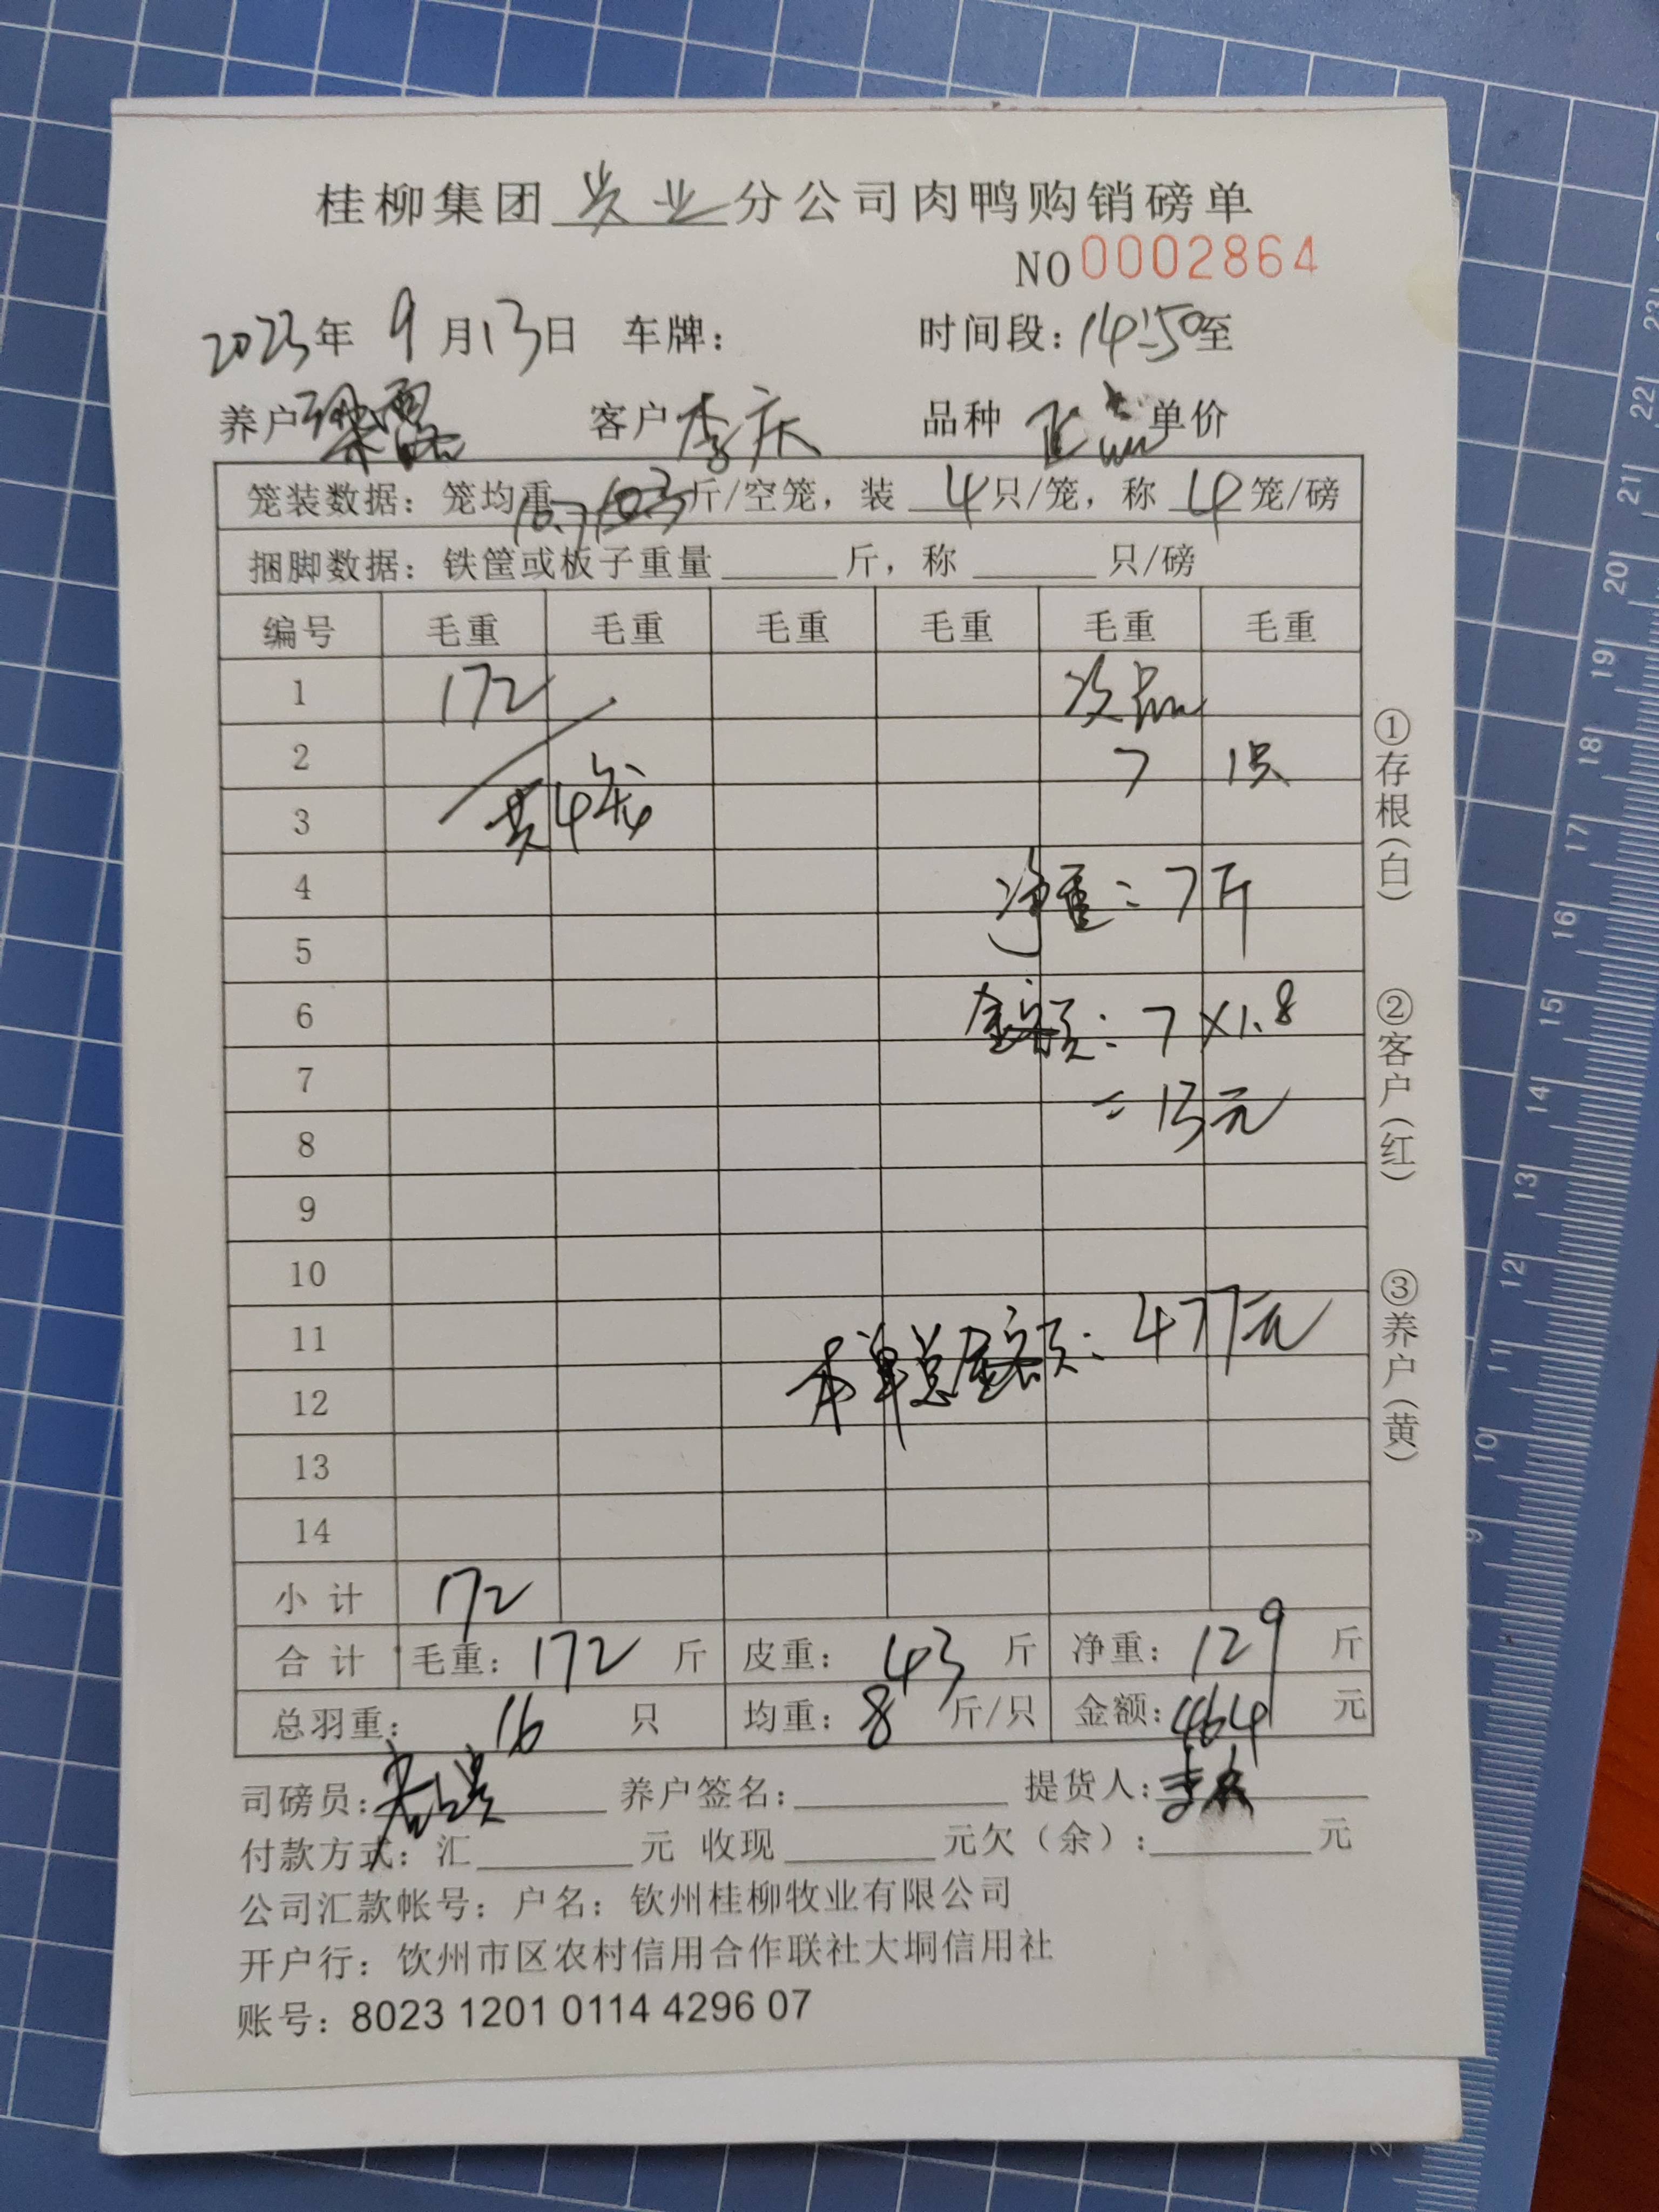 桂柳集团 业 分公司肉鸭购销磅单
NO 0002864
2023年 9月13日 车牌： 时间段：14:50至
养户 梁露 客户 李庆 品种 正品 单价
笼装数据：笼均重 10.7 斤/空笼，装 4 只/笼，称 4 笼/磅
捆脚数据：铁筐或板子重量 斤，称 只/磅
编号 毛重 毛重 毛重 毛重 毛重 毛重
1 172 次品
2 7 1只
3 共4笼
4 净重：7斤
5
6 金额：7×1.8
7 =13元
8
9
10
11 本单总金额：477元
12
13
14
小计 172
合计 毛重：172 斤 皮重：43 斤 净重：129 斤
总羽重：16 只 均重：8 斤/只 金额：464 元
司磅员： 养户签名： 提货人：李庆
付款方式：汇 元 收现 元欠（余）： 元
公司汇款帐号：户名：钦州桂柳牧业有限公司
开户行：钦州市区农村信用合作联社大垌信用社
账号：8023 1201 0114 4296 07
①存根（白）
②客户（红）
③养户（黄）
9
10
11
12
13
14
15
16
17
18
19
20
21
22
23